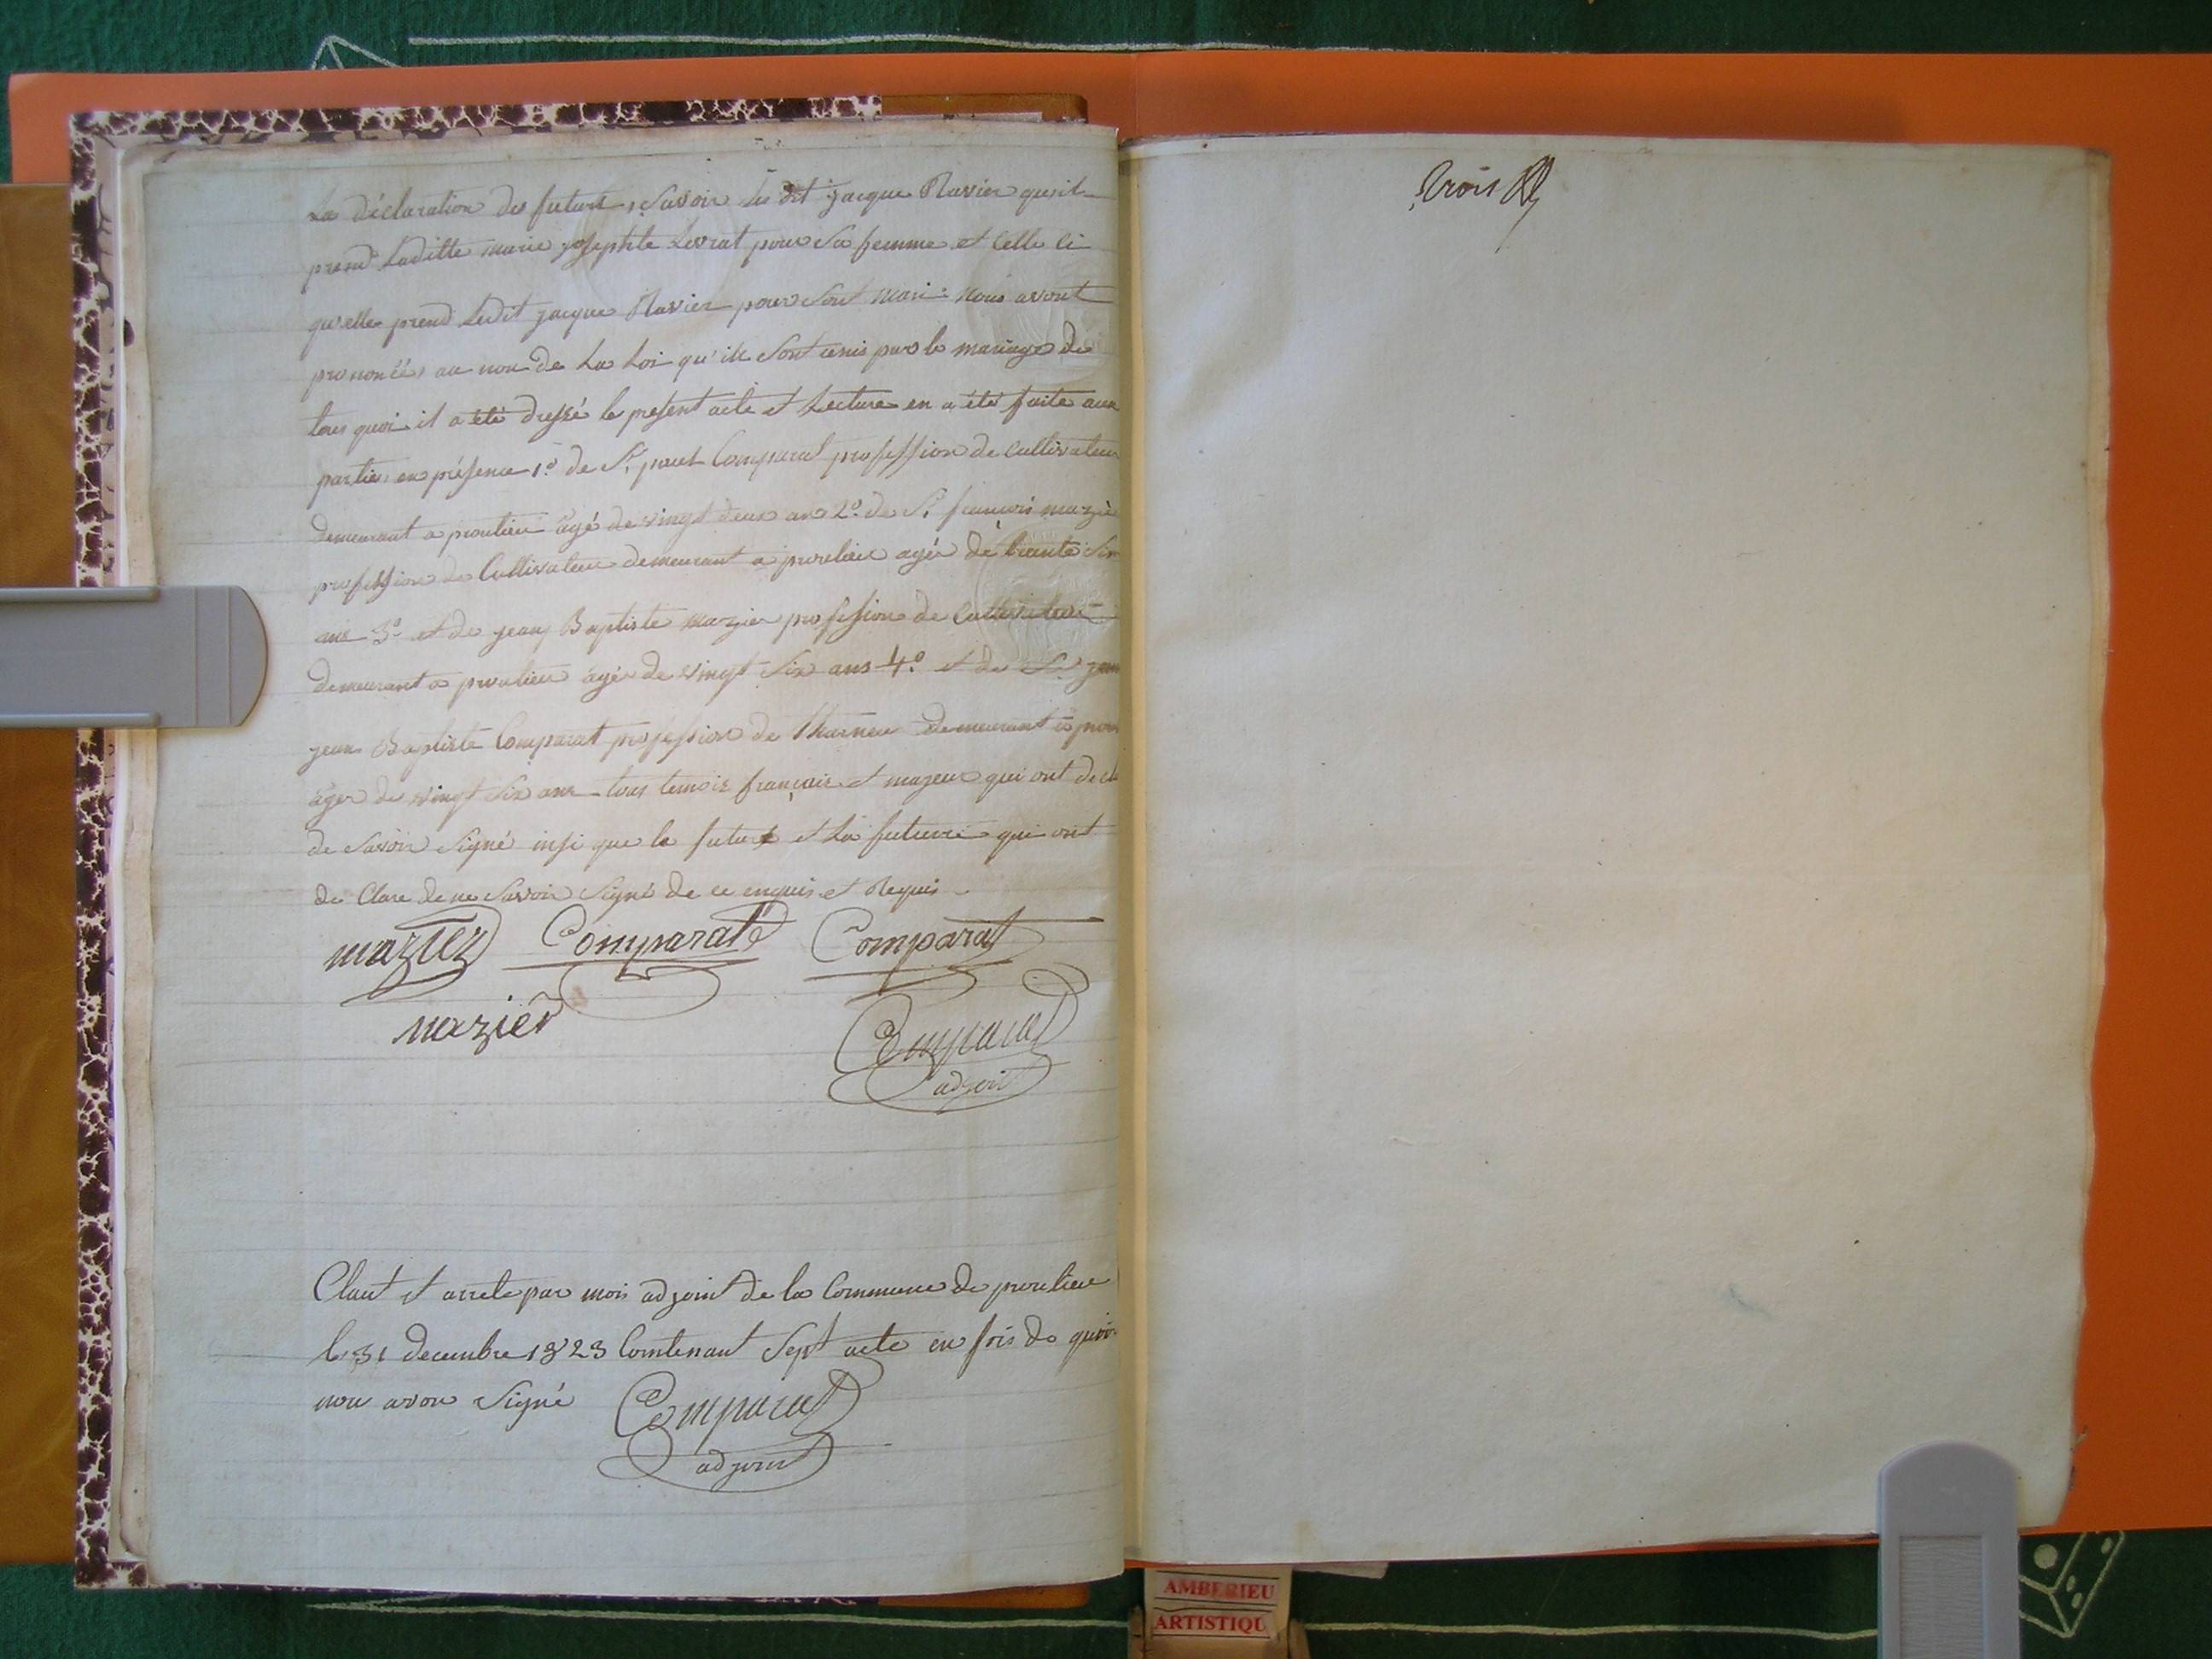 La déclaration du futurs, Savoir Le dit jacque Ravier qu'il
prend Laditte marie josephte Levrat pour Sa femme et Celle Ci
qu'elle prend Ledit jacque Ravier pour Sont mari: Nous avont
prononcés au non de La Loi qu'ils Sont unis par le mariage de
tous quoi il a été dressé le present acte et Lecture en a été faite aux
parties en présence 1.º de S.r Comparat profession de Cultivateur
demeurant a proulieu âgé de vingt deux ans 2.º de S.r francois mazie
profession de Cultivateur demeurant a proulieu agé de trente
ans 3.º et de jean Baptiste mazier profession de Cultivateur
demeurant a proulieu âgé de vingt Six ans 4.º et de S.r jean
jean Baptiste Comparat profession de demeurant a prou
âger de vingt Six ans tous temois francais et majeur qui ont decla
de Savoir Signé insi que le futur et La future qui ont
de Clare de ne Savoir Signé de ce enquis et Requis
mazier Comparat Comparat
mazier
Comparat
adjoint
Claut et arrete par moi adjoint de la Commune de proulieu
le 31 decembre 1823 Contenant Sept acte en fois de quoi
nou avon Signé Comparat
adjoint
trois
AMBERIEU
ARTISTIQU